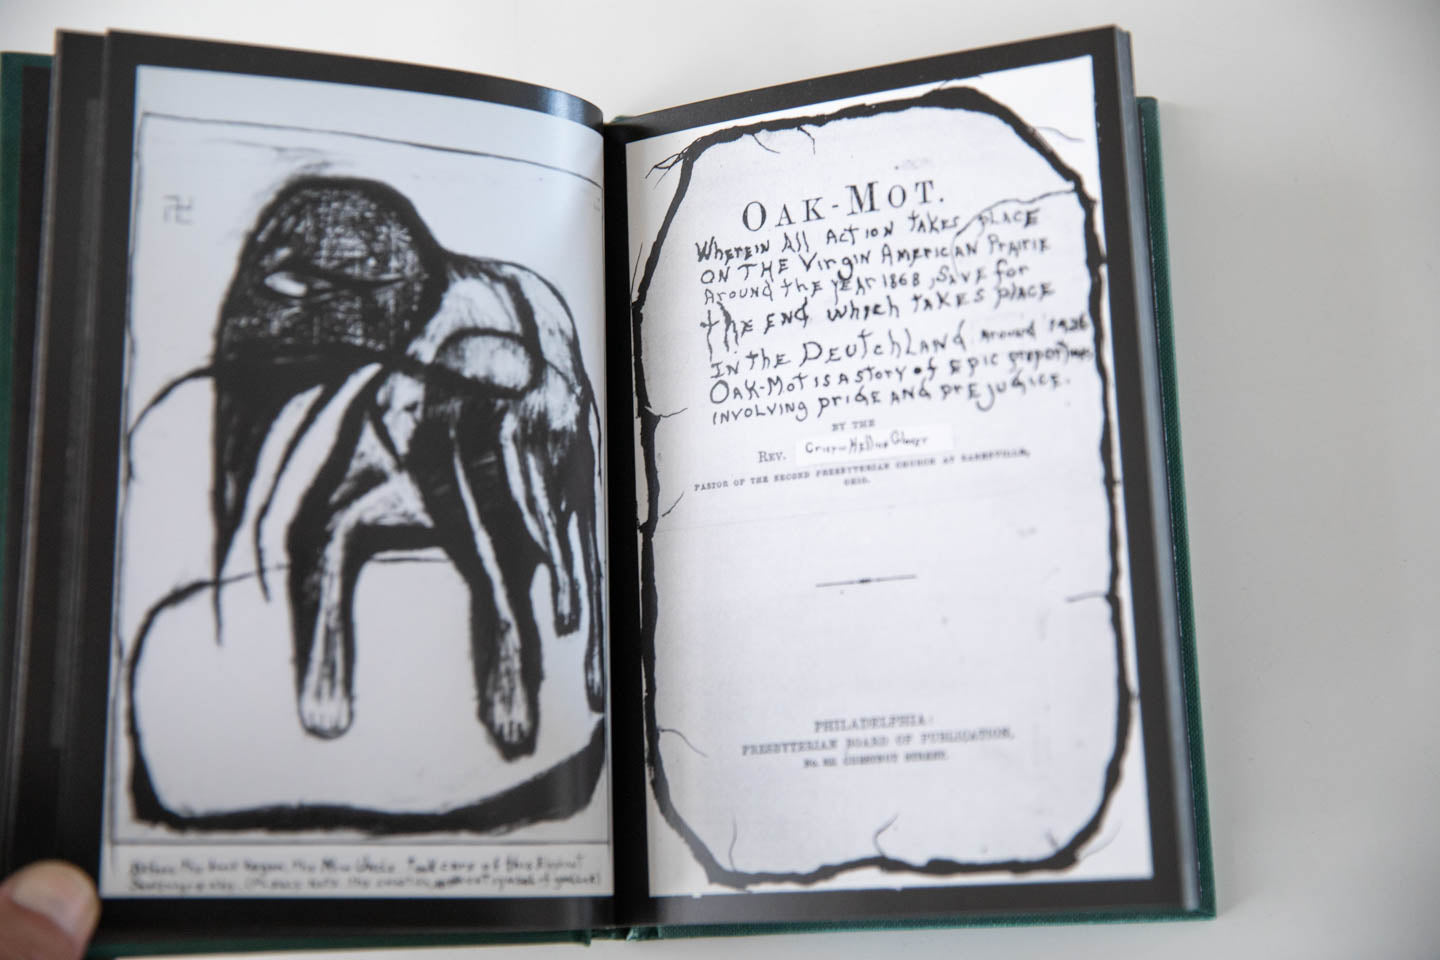 Before the book began, the Mine Uncle took care of this Extinct
(Please note the ancient symbol of good luck)
OAK-MOT.
WHEREIN All ACTION TAKES PLACE
ON THE VIRGIN AMERICAN PRAIRIE
AROUND the YEAR 1868, SAVE for
the END which TAKES PLACE
IN THE DEUTCHLAND AROUND 1926
OAK-MOT IS A STORY of EPIC proportions
INVOLVING PRIDE AND PREJUDICE.
BY THE
REV. Crispin Hellion Glover
PASTOR OF THE SECOND PRESBYTERIAN CHURCH AT BARNESVILLE,
OHIO.
PHILADELPHIA:
PRESBYTERIAN BOARD OF PUBLICATION,
No. 821 CHESTNUT STREET.